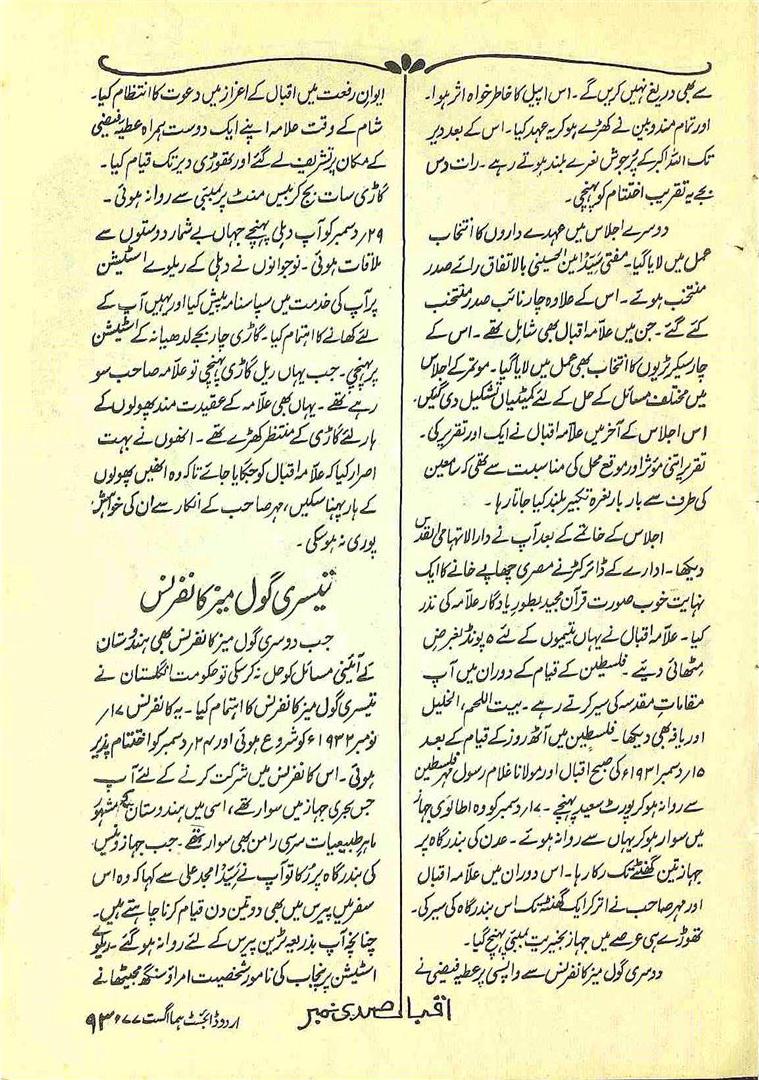 سے بھی دریغ نہیں کریں گے۔ اس اپیل کا خاطر خواہ اثر ہوا۔
اور تمام مندوبین نے کھڑے ہو کر یہ عہد کیا۔ اس کے بعد دیر
تک اللہ اکبر کے پُر جوش نعرے بلند ہوتے رہے۔ رات دس
بجے یہ تقریب اختتام کو پہنچی۔
دوسرے اجلاس میں عہدے داروں کا انتخاب
عمل میں لایا گیا۔ مفتی سیّد امین الحسینی بالاتفاق رائے صدر
منتخب ہوئے۔ اس کے علاوہ چار نائب صدر منتخب
کئے گئے۔ جن میں علّامہ اقبال بھی شامل تھے۔ اس کے
چار سیکرٹریوں کا انتخاب بھی عمل میں لایا گیا۔ موتمر کے اجلاس
میں مختلف مسائل کے حل کے لئے کمیٹیاں تشکیل دی گئیں۔
اس اجلاس کے آخر میں علّامہ اقبال نے ایک اور تقریر کی۔
تقریر اتنی مؤثر اور موقع محل کی مناسبت سے تھی کہ سامعین
کی طرف سے بار بار نعرۂ تکبیر بلند کیا جاتا رہا۔
اجلاس کے خاتمے کے بعد آپ نے دارالایتام القدس
دیکھا۔ ادارے کے ڈائرکٹر نے مصری چھاپے خانے کا ایک
نہایت خوب صورت قرآن مجید بطورِ یادگار علّامہ کی نذر
کیا۔ علّامہ اقبال نے یہاں یتیموں کے لئے ۵ پونڈ بغرضِ
مٹھائی دیئے۔ فلسطین کے قیام کے دوران میں آپ
مقاماتِ مقدسہ کی سیر کرتے رہے۔ بیت اللحم، الخلیل
اور یافہ بھی دیکھا۔ فلسطین میں آٹھ روز کے قیام کے بعد
۱۵؍ دسمبر ۱۹۳۱ء کی صبح اقبال اور مولانا غلام رسول مہر فلسطین
سے روانہ ہو کر پورٹ سعید پہنچے۔ ۱۷؍ دسمبر کو وہ اطالوی جہاز
میں سوار ہو کر یہاں سے روانہ ہوئے۔ عدن کی بندرگاہ پر
جہاز تین گھنٹے تک رکا رہا۔ اس دوران میں علّامہ اقبال
اور مہر صاحب نے اتر کر ایک گھنٹہ تک اس بندرگاہ کی سیر کی۔
تھوڑے ہی عرصے میں جہاز بخیریت بمبئی پہنچ گیا۔
دوسری گول میز کانفرنس سے واپسی پر عطیہ فیضی نے
ایوانِ رفعت میں اقبال کے اعزاز میں دعوت کا انتظام کیا۔
شام کے وقت علامہ اپنے ایک دوست ہمراہ عطیہ فیضی
کے مکان پر تشریف لے گئے اور تھوڑی دیر تک قیام کیا۔
گاڑی سات بج کر بیس منٹ پر بمبئی سے روانہ ہوئی۔
۲۹؍ دسمبر کو آپ دہلی پہنچے جہاں بے شمار دوستوں سے
ملاقات ہوئی۔ نوجوانوں نے دہلی کے ریلوے اسٹیشن
پر آپ کی خدمت میں سپاسنامہ پیش کیا اور یہیں آپ کے
لئے کھانے کا اہتمام کیا۔ گاڑی چار بجے لدھیانہ کے اسٹیشن
پر پہنچی۔ جب یہاں ریل گاڑی پہنچی تو علّامہ صاحب سو
رہے تھے۔ یہاں بھی علّامہ کے عقیدت مند پھولوں کے
ہار لئے گاڑی کے منتظر کھڑے تھے۔ انھوں نے بہت
اصرار کیا کہ علّامہ اقبال کو جگایا جائے تاکہ وہ انھیں پھولوں
کے ہار پہنا سکیں، مہر صاحب کے انکار سے ان کی خواہش
پوری نہ ہو سکی۔
تیسری گول میز کانفرنس
جب دوسری گول میز کانفرنس بھی ہندوستان
کے آئینی مسائل کو حل نہ کر سکی تو حکومت انگلستان نے
تیسری گول میز کانفرنس کا اہتمام کیا۔ یہ کانفرنس ۱۷؍
نومبر ۱۹۳۲ء کو شروع ہوئی اور ۲۴؍ دسمبر کو اختتام پذیر
ہوئی۔ اس کانفرنس میں شرکت کرنے کے لئے آپ
جس بحری جہاز میں سوار تھے، اسی میں ہندوستان کے مشہور
ماہرِ طبیعیات سر سی رامن بھی سوار تھے۔ جب جہاز وینس
کی بندرگاہ پر رُکا تو آپ نے سیّد امجد علی سے کہا کہ وہ اس
سفر میں پیرس میں بھی دو تین دن قیام کرنا چاہتے ہیں۔
چنانچہ آپ بذریعہ ٹرین پیرس کے لئے روانہ ہو گئے۔ ریلوے
اسٹیشن پر پنجاب کی نامور شخصیت امراؤ سنگھ مجیٹھیا نے
اقبال صدی نمبر
اردو ڈائجسٹ ہما اگست ۷۷ء ۹۳